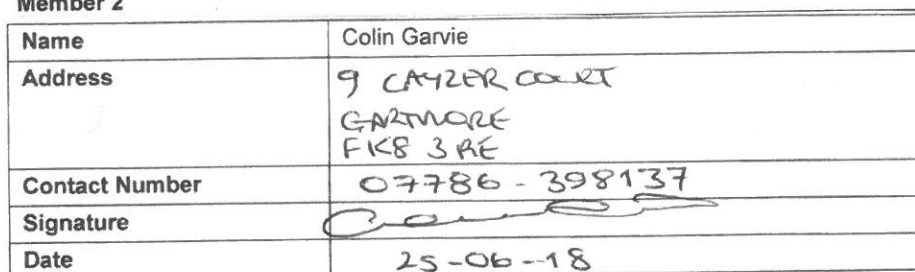 Member 2
Name Colin Garvie
Address 9 CAYZER COURT
GARTMORE
FK8 3RE
Contact Number 07786-398137
Signature
Date 25-06-18